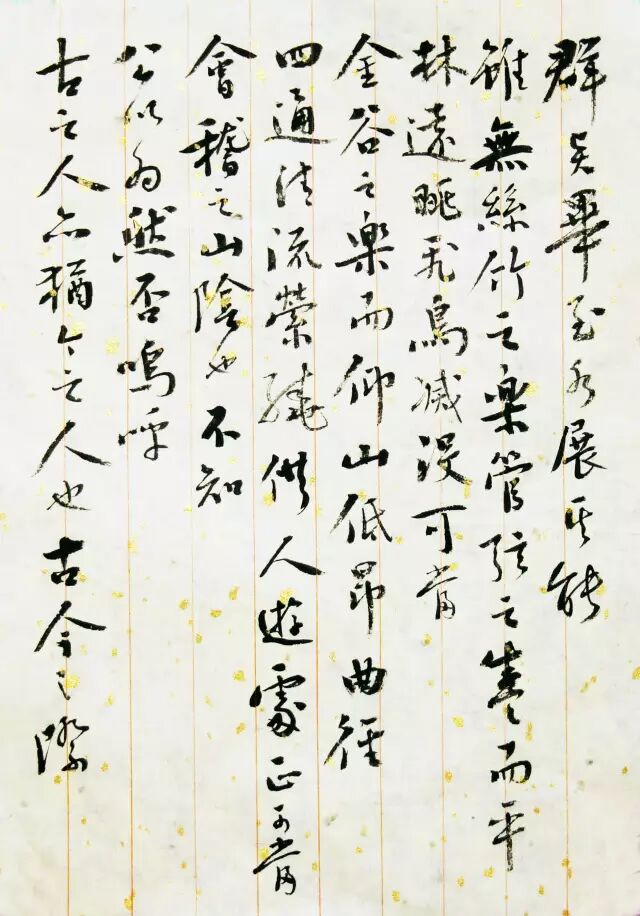 群賢畢至各展其能
雖無絲竹之樂管弦之盛而平
林遠眺飛鳥滅沒可當
金谷之樂而仰山低昂曲徑
四通清流縈繞供人遊處正可當
會稽之山陰也不知
公以為然否嗚呼
古之人亦猶今之人也古今之際